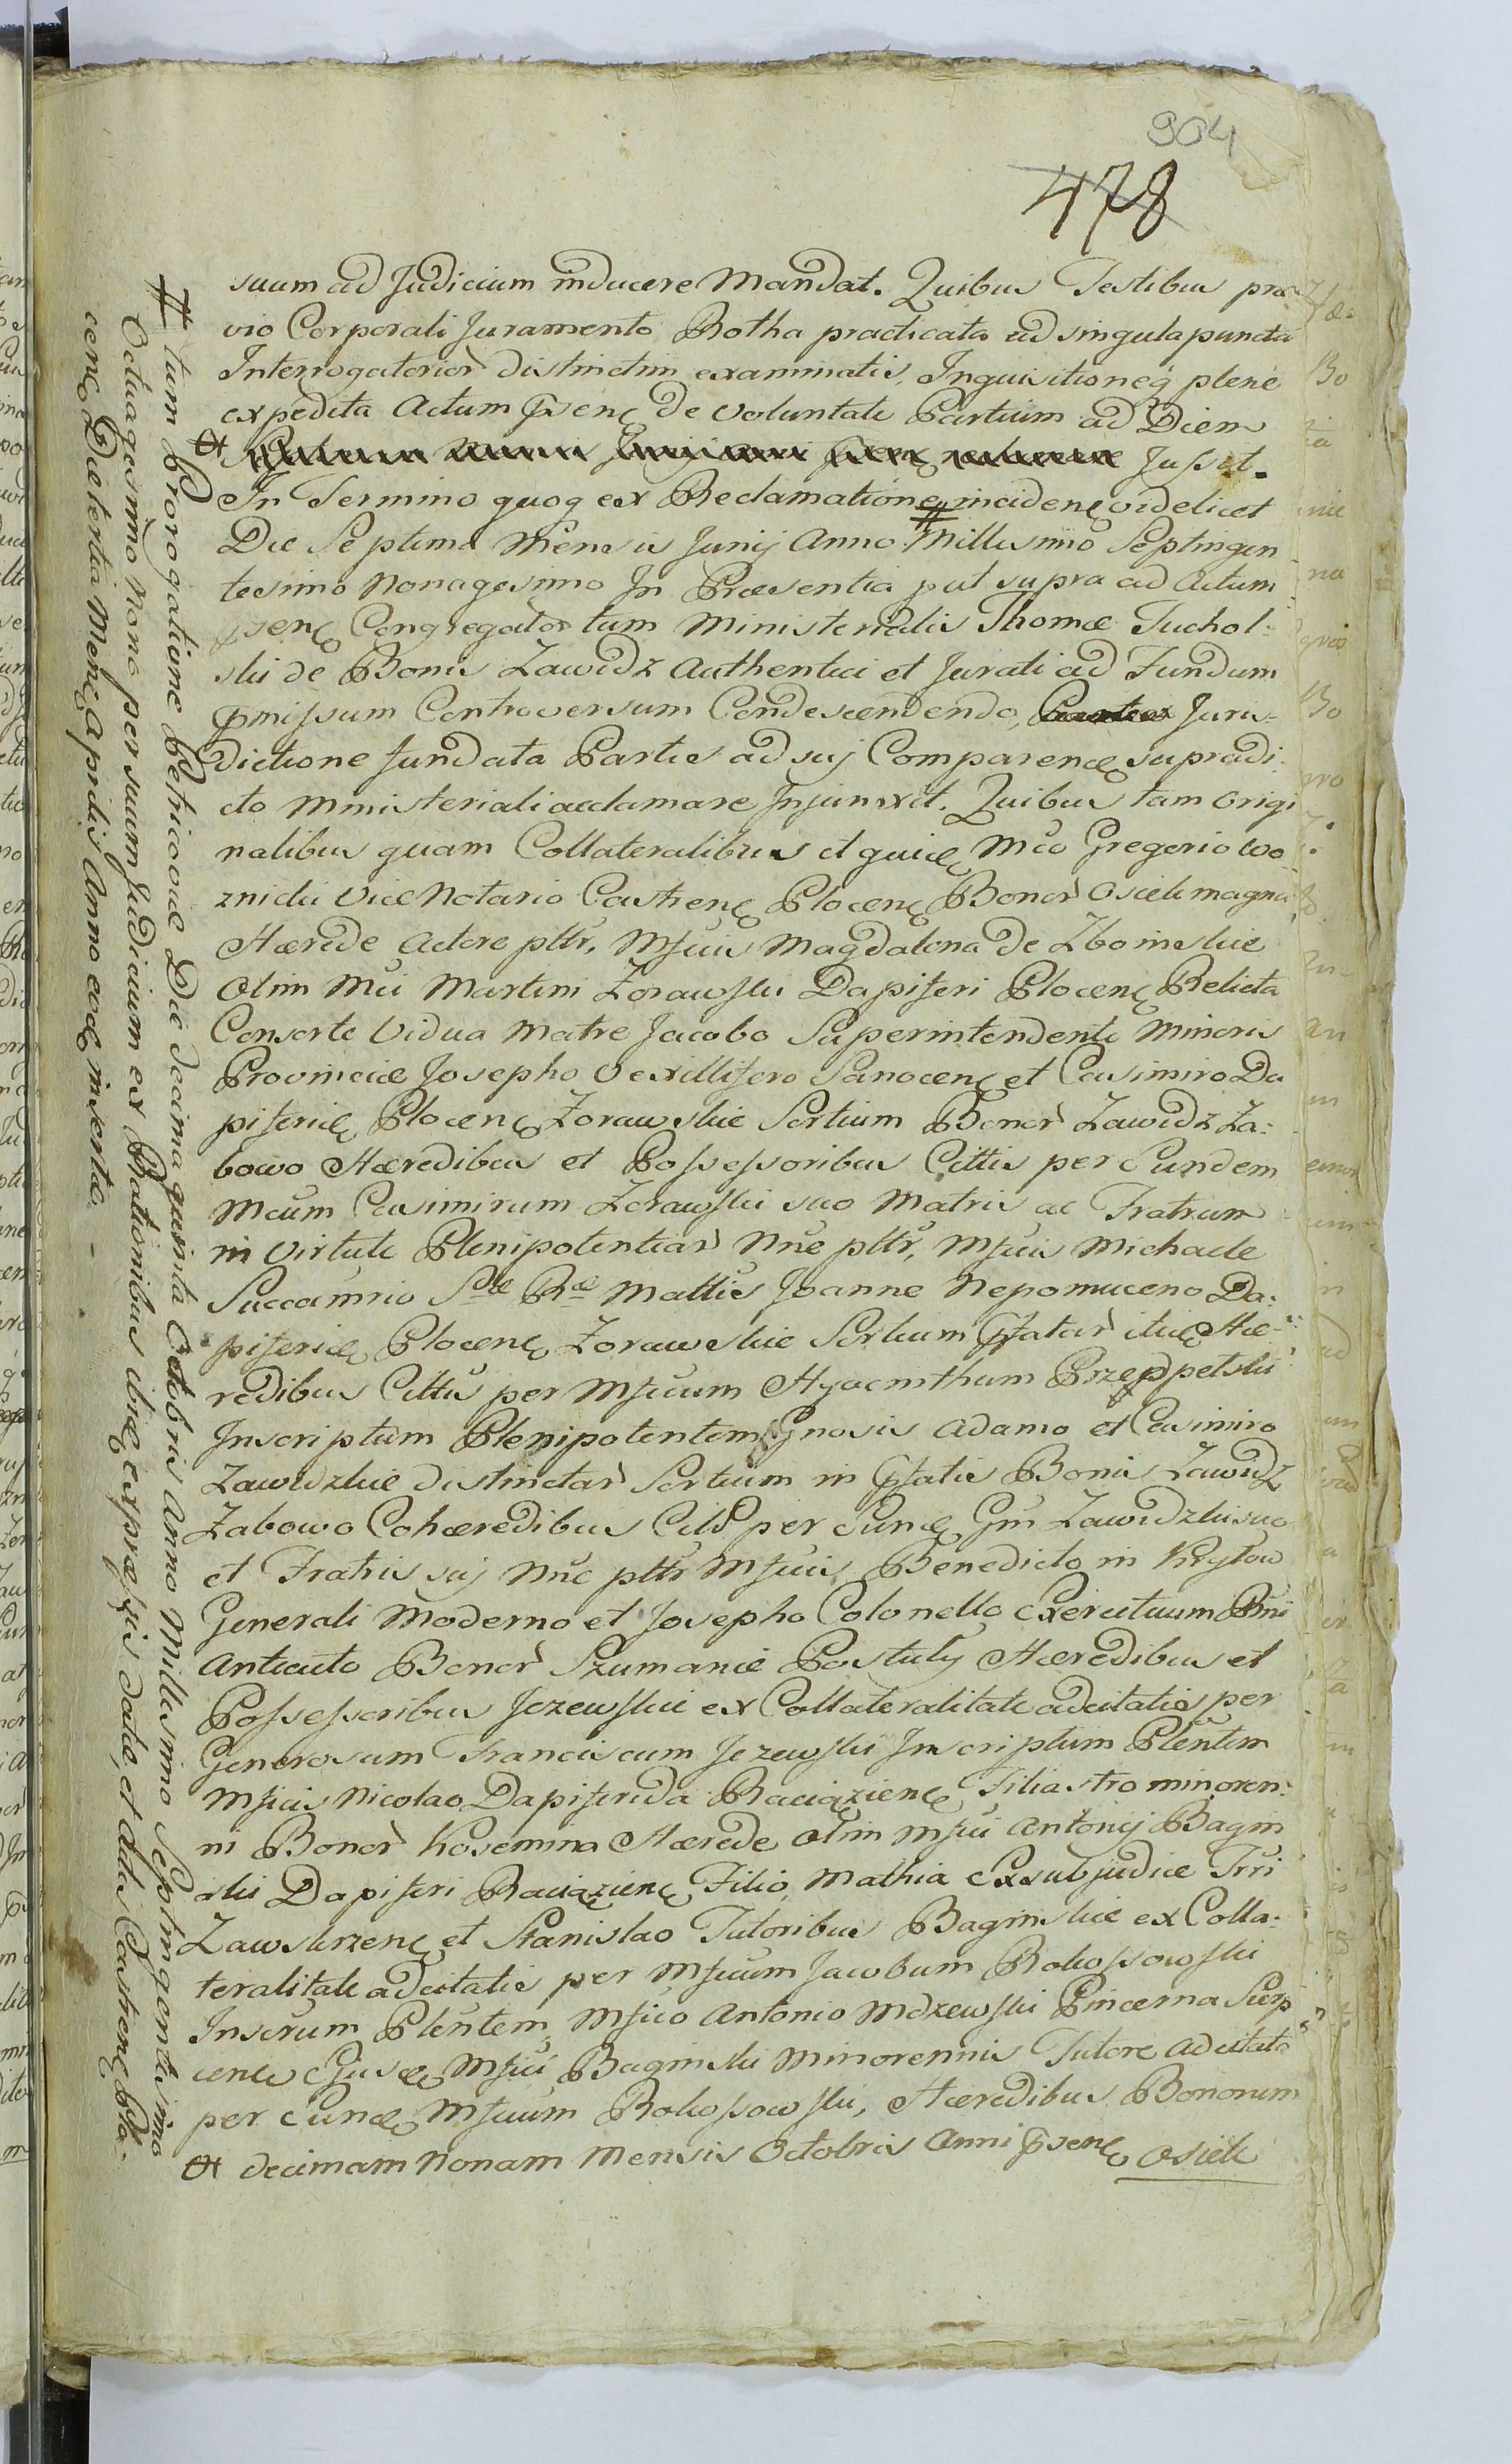 904
478
suum ad Judicium inducere Mandat. Quibus Testibus præ
vio Corporali Juramento Rotha practicata ad singula puncta
Interrogatorior distinctim examinatis, Inquisitioneq plene
expedita Actum Psenę de voluntate Partium ad Diem
Jussit.
In Termino quoq ex Reclamatione incidenę videlicet
Die Septima Mensis Junij Anno Millesimo Septingen
tesimo Nonagesimo In Præsentia put supra ad Actum
psenę Congregator tum Ministerialis Thomæ Tuchol-
ski de Bonis Zawidz Authentici et Jurati ad Fundum
Pmissum Controversum Condescendendo, Juris-
dictione fundata Partes ad sui Comparenę supradi
cto Ministeriali acclamare Injunxit. Quibus tam Origi
nalibus quam Collateralibus et quidę Mco Gregorio Wo
znicki Vice Notario Castrenę Plocenę Bonor Osieck magna
Hærede Actore pttr, Mficis Magdalena de Zboinskie
Olim Mci Martini Zorawski Dapiferi Plocenę Relicta
Consorte Vidua Matre Jacobo Superintendente Minoris
Provinciæ Josepho Vexillifero Sanocenę et Casimiro Da
piferidę Plocenę Zorawskie Sortium Bonor Zawidz Za-
bowo Hæredibus et Possessoribus Cittis per Eundem
Mcum Casimirum Zorawski suo Matris ac Fratrum
in Virtute Plenipotentiar Nne pttr, Mficis Michaele
Succamrio Sæ Ræ Mattis Joanne Nepomuceno Da-
piferidę Plocenę Zorawskie Sortium Pfatar itidę Hæ-
redibus Cittis per Mficum Hyacinthum Przedpetski
Inscriptum Plenipotentem Gnosis Adamo et Casimiro
Zawidzkie distinctar Sortium in Pfatis Bonis Zawidz
Zabowo Cohæredibus Citt per Eundę Gm Zawidzki suo
et Fratris sui Nne pttr Mficis, Benedicto in
Generali Moderno et Josepho Colonello Exercituum
Bonor Szumanie Pustuly Hæredibus et
Possessoribus Jezewskie ex Collateralitate adcitatis per
Generosum Franciscum Jezewski Inscriptum Plentem
Mficis Nicolao Dapiferida Raciązienę Filiastro minoren-
ni Bonor Kosemina Hærede Olim Mfici Antonij Bagin
ski Dapiferi Raciązienę Filio, Mathia Exsubjudice Trri
Zawskrzenę et Stanislao Tutoribus Baginskie ex Colla-
teralitate adcitatis per Mficum Jacobum Rokossowski
Inscrum Plentem, Mfico Antonio Mdzewski Pincerna Sierp
cenę Ejusdę Mfici Baginski Minorennis Tutore adcitato
per Eundę Mficum Rokossowski, Hæredibus Bonorum
decimam Nonam Mensis Octobris Anni Psenę Osieck
# tum Prorogatione Petricoviæ Die decima quinta Octobris Anno Millesimo Septingentesimo
Octuagesimo Nono per suum Judicium ex Rationibus ibidę expressis datæ, et Actis Castrenę Plo-
cenę Die tertia Menę Aprilis Anno eodę insertæ.